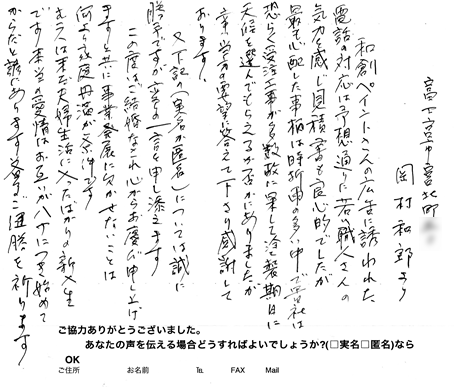 富士宮市宮北町
岡村和郎より
和創ペイントさんの広告に誘われた
電話の対応は予想通りに若い職人さんの
気力を感じ見積書も良心的でしたが
最も心配した事柄は時折雨の多い中で貴社は
想らく受注工事が多数故に果して冷製期日に
天候を選んでもらえるか否かにありましたが
幸い当方の要望に答えて下さり感謝して
おります。
又下記の(実名か匿名)については誠に
勝手ですが一言を申し添えます
この度はご結婚なされ心からお慶び申し上げ
ますと共に事業発展に欠かせないことは
何よりも家庭円満が条件です
むろん未だ夫婦生活に入ったばかりの新人生
です本当の愛情はお互いが八十につき始めて
からだと諺にあります
ご健勝を祈ります
ご協力ありがとうございました。
あなたの声を伝える場合どうすればよいでしょうか?(□実名□匿名)なら
OK
ご住所 お名前 ℡ FAX Mail